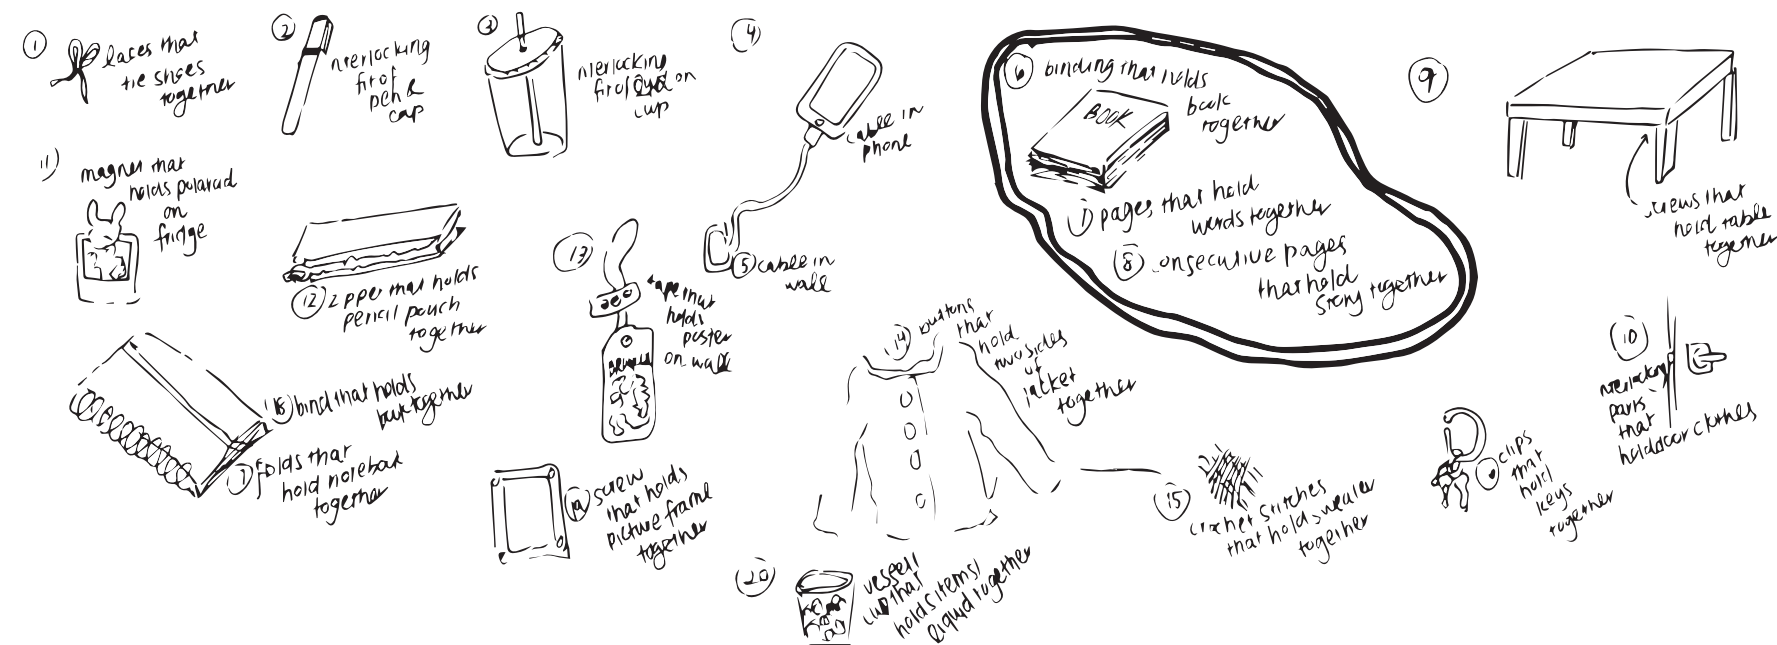 1
laces that
tie shoes
together
2
nterlocking
fit of
pen &
cap
3
nterlocking
fit of
on
cup
4
cable in
phone
5 cable in
wall
6 binding that holds
book
together
BOOK
7 pages that hold
words together
8 consecutive pages
that hold
story together
9
screws that
hold table
together
10
nterlocking
parts
that
hold door clothes
11)
magnet that
holds polaroid
on
fridge
12 zipper that holds
pencil pouch
together
13
tape that
holds
poster
on wall
14 buttons
that
hold
two sides
of
jacket
together
15
crochet stitches
that hold sweater
together
clips
that
hold
keys
together
18 bind that holds
book together
folds that
hold notebook
together
19 screw
that holds
picture frame
together
20
vessel/
cup that
holds items/
liquid together